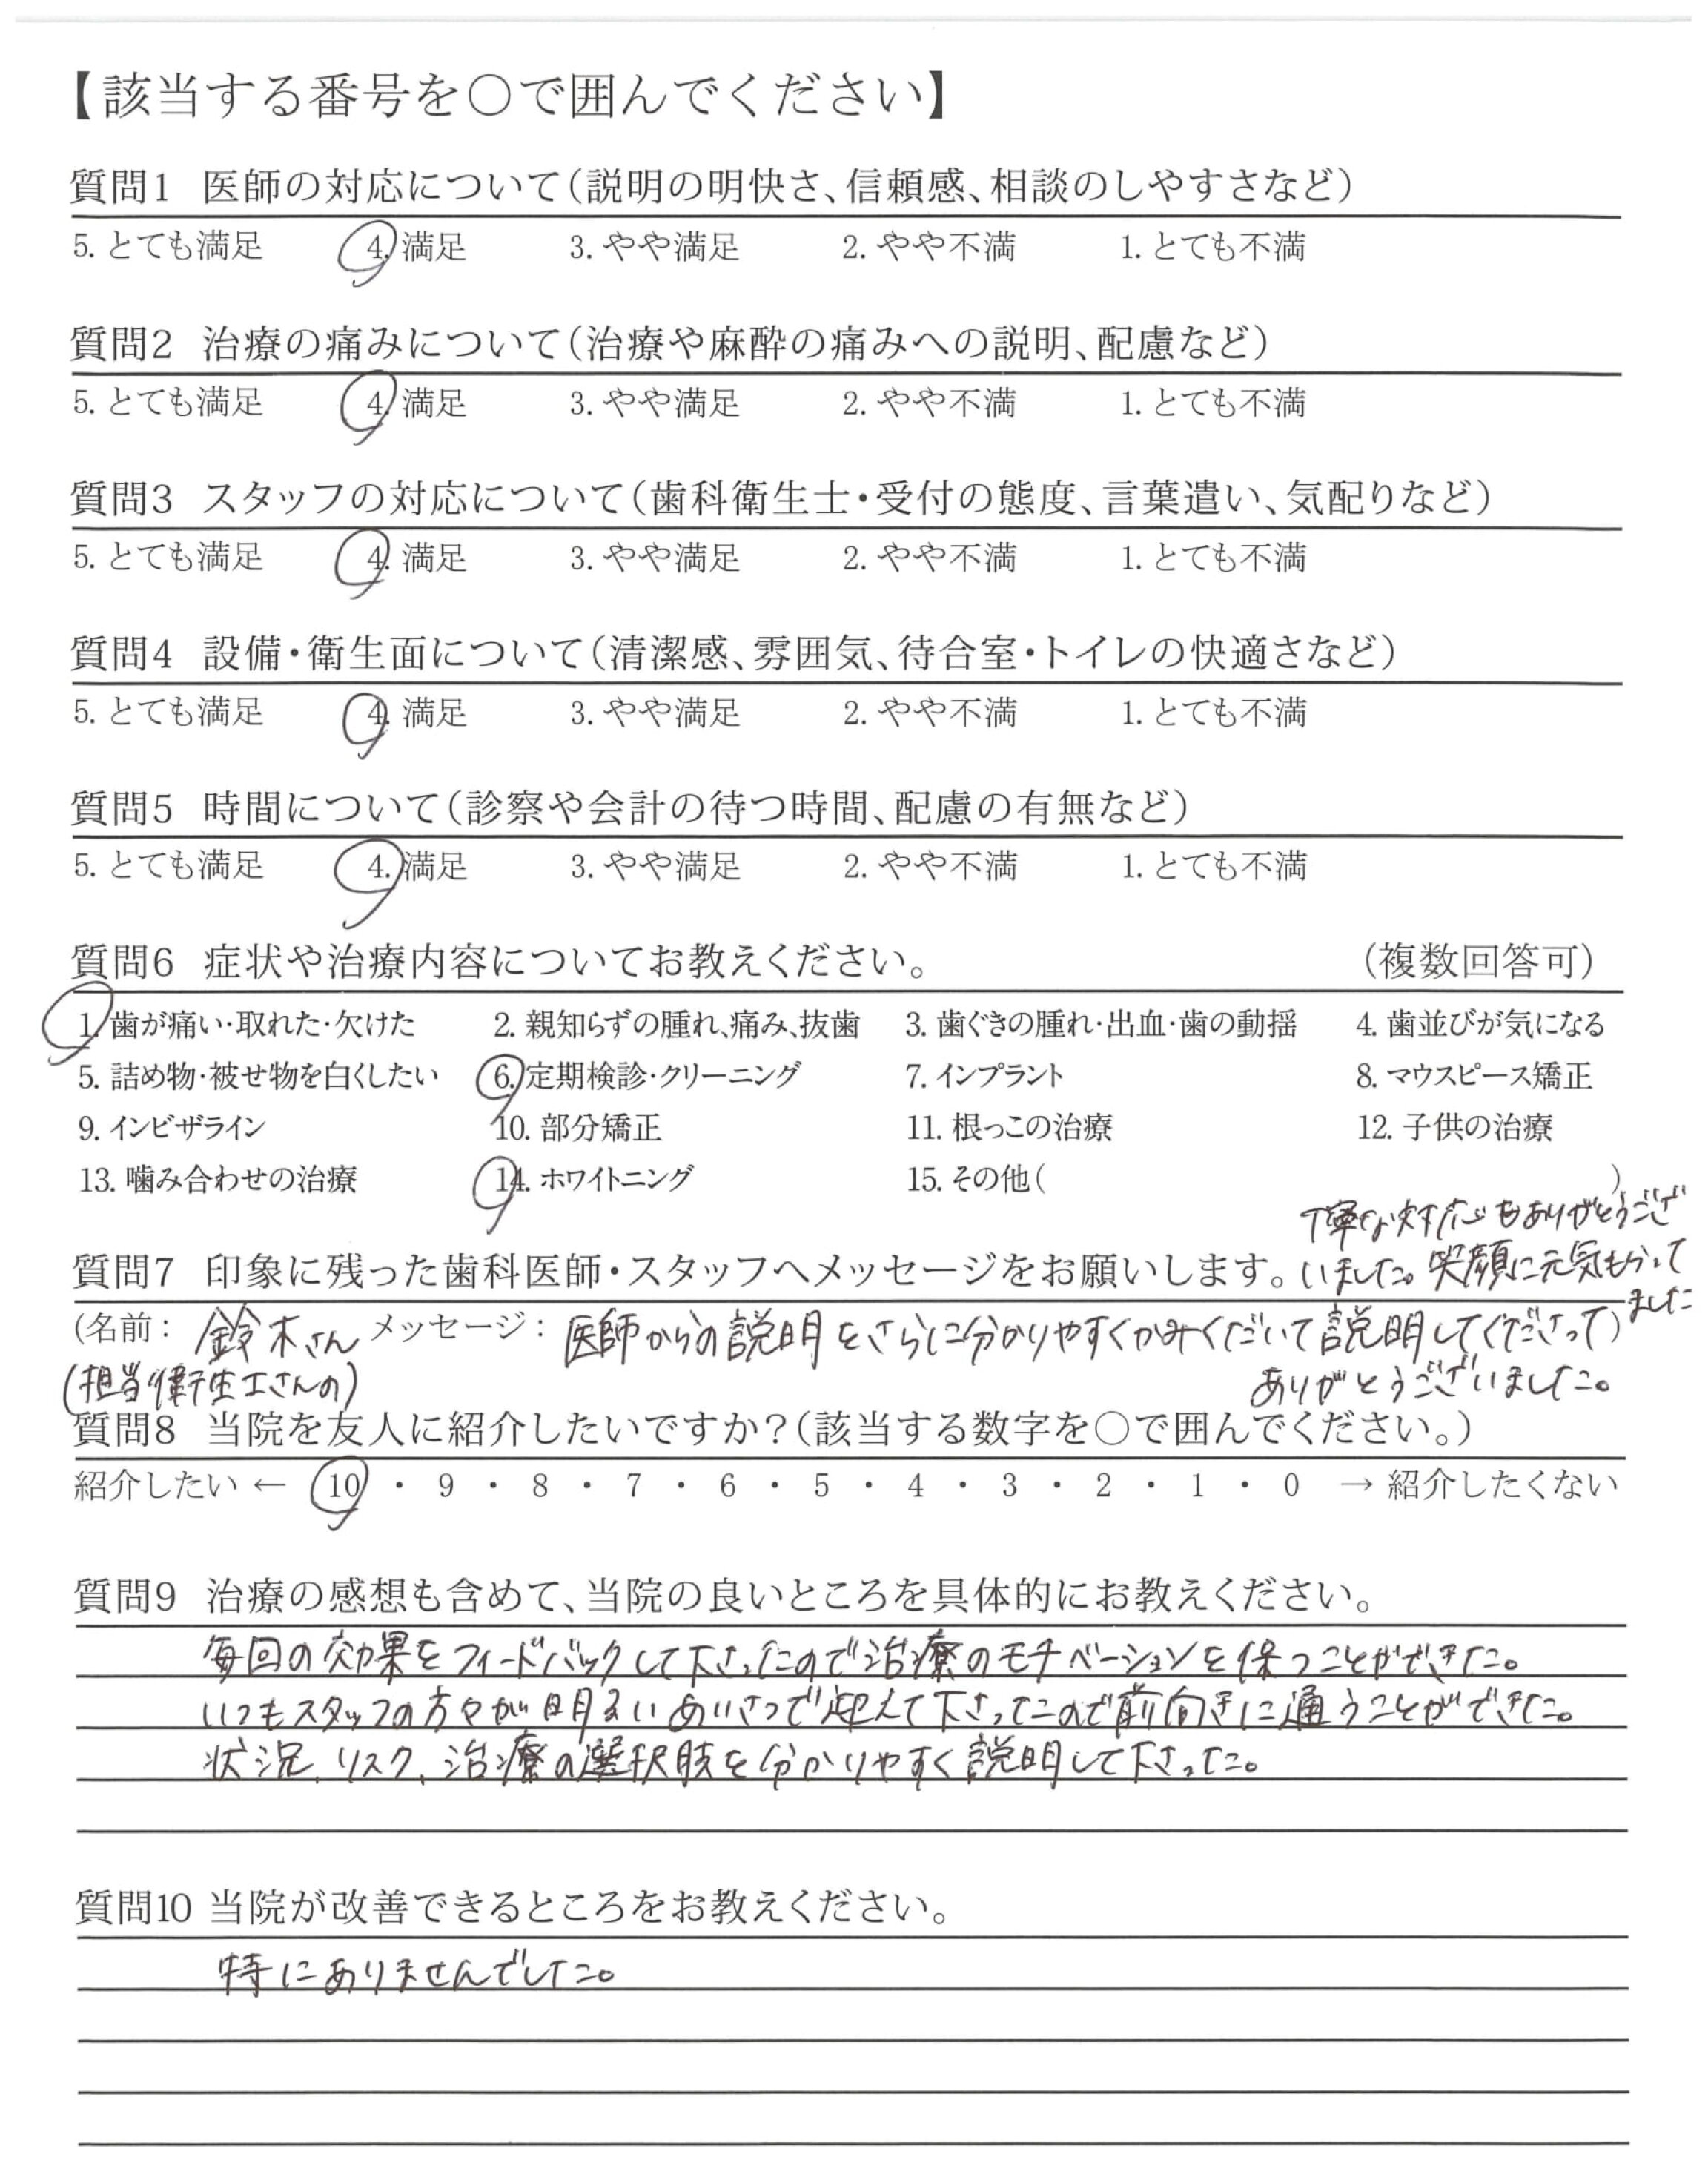 【該当する番号を〇で囲んでください】
質問1 医師の対応について（説明の明快さ、信頼感、相談のしやすさなど）
5. とても満足 4. 満足 3. やや満足 2. やや不満 1. とても不満
質問2 治療の痛みについて（治療や麻酔の痛みへの説明、配慮など）
5. とても満足 4. 満足 3. やや満足 2. やや不満 1. とても不満
質問3 スタッフの対応について（歯科衛生士・受付の態度、言葉遣い、気配りなど）
5. とても満足 4. 満足 3. やや満足 2. やや不満 1. とても不満
質問4 設備・衛生面について（清潔感、雰囲気、待合室・トイレの快適さなど）
5. とても満足 4. 満足 3. やや満足 2. やや不満 1. とても不満
質問5 時間について（診察や会計の待つ時間、配慮の有無など）
5. とても満足 4. 満足 3. やや満足 2. やや不満 1. とても不満
質問6 症状や治療内容についてお教えください。 （複数回答可）
1. 歯が痛い・取れた・欠けた 2. 親知らずの腫れ、痛み、抜歯 3. 歯ぐきの腫れ・出血・歯の動揺 4. 歯並びが気になる
5. 詰め物・被せ物を白くしたい 6. 定期検診・クリーニング 7. インプラント 8. マウスピース矯正
9. インビザライン 10. 部分矯正 11. 根っこの治療 12. 子供の治療
13. 噛み合わせの治療 14. ホワイトニング 15. その他（ ）
質問7 印象に残った歯科医師・スタッフへメッセージをお願いします。
（名前： 鈴木さん メッセージ： 医師からの説明をさらに分かりやすくかみくだいて説明してくださって）
(担当衛生士さんの) ありがとうございました。
丁寧な対応もありがとうござ
いました。笑顔に元気もらって
ました
質問8 当院を友人に紹介したいですか？（該当する数字を〇で囲んでください。）
紹介したい ← 10 ・ 9 ・ 8 ・ 7 ・ 6 ・ 5 ・ 4 ・ 3 ・ 2 ・ 1 ・ 0 → 紹介したくない
質問9 治療の感想も含めて、当院の良いところを具体的にお教えください。
毎回の効果をフィードバックして下さったので治療のモチベーションを保つことができた。
いつもスタッフの方々が明るいあいさつで迎えて下さったので前向きに通うことができた。
状況、リスク、治療の選択肢を分かりやすく説明して下さった。
質問10 当院が改善できるところをお教えください。
特にありませんでした。